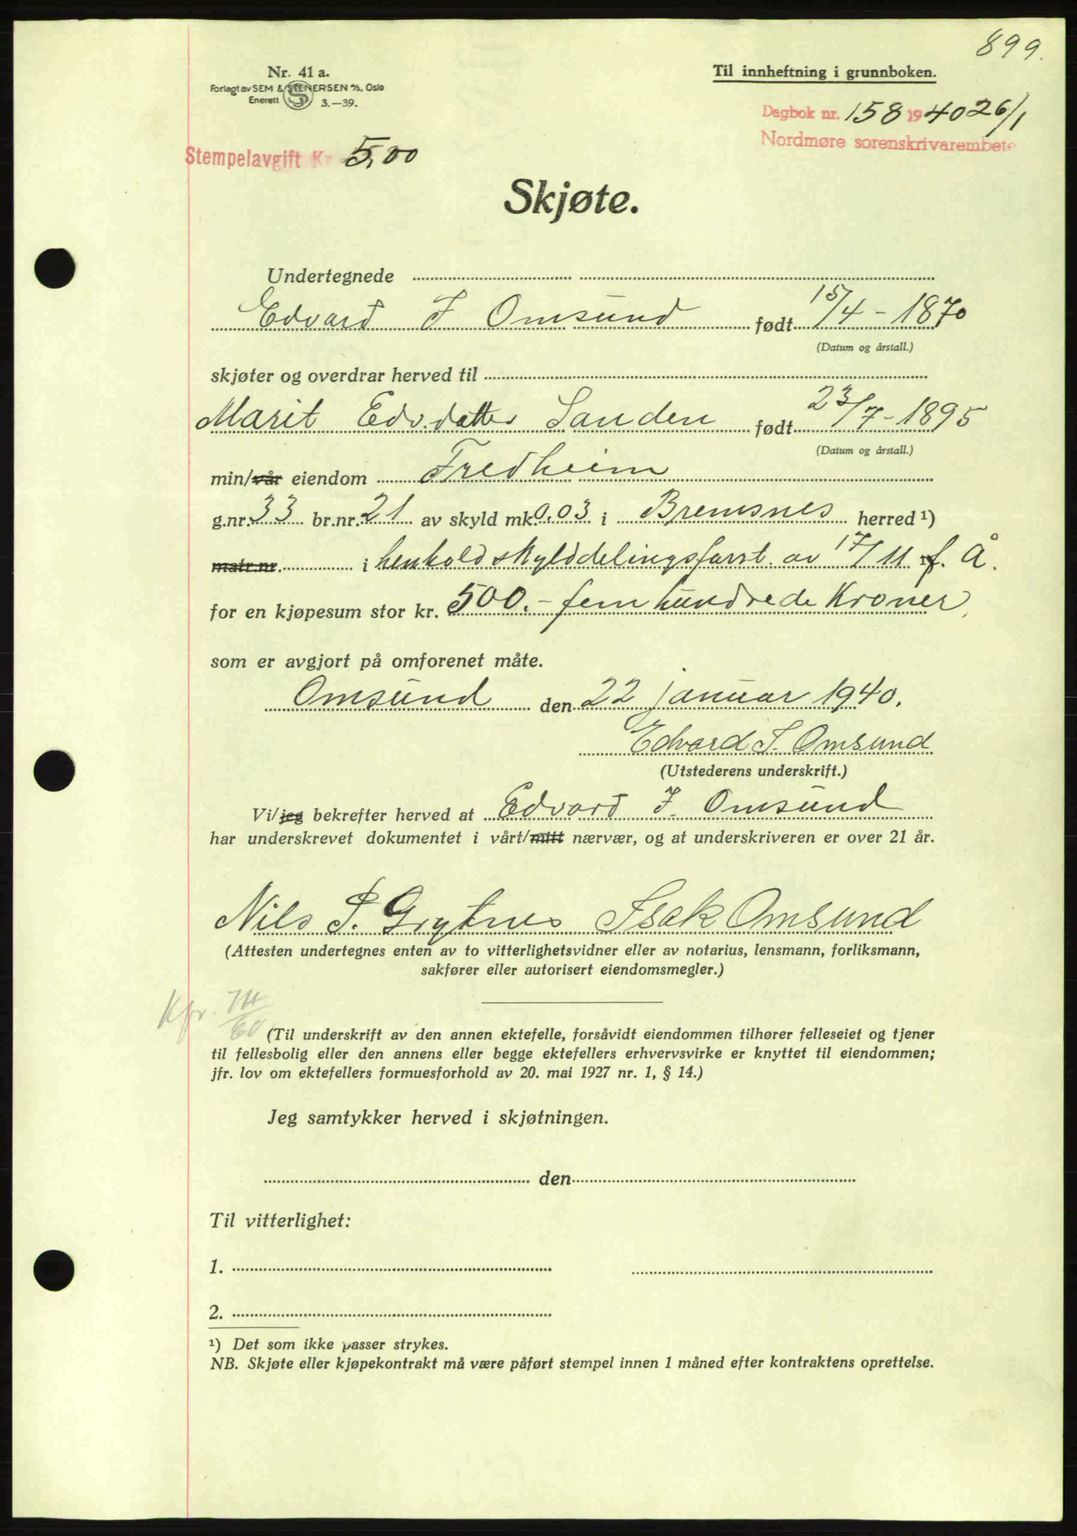 899.
Nr. 41 a.
Forlagt av SEM & STENERSEN A/S, Oslo
Enerett 3.—39.
Til innheftning i grunnboken.
Dagbok nr. 158 1940 26/1
Nordmøre sorenskrivarembete
Stempelavgift Kr 5,00
Skjøte.
Undertegnede
Edvard I Omsund født 15/4 - 1870
(Datum og årstall.)
skjøter og overdrar herved til
Marit Edv.datter Sanden født 23/7 - 1895
(Datum og årstall.)
min/vår eiendom Fredheim
g.nr. 33 br.nr. 21 av skyld mk 0,03 i Bremsnes herred ¹)
matr.nr. i henhold skylddelingsforrt. av 17/11 f. Å.
for en kjøpesum stor kr. 500.- fem hundrede Kroner,
som er avgjort på omforenet måte.
Omsund den 22 januar 1940.
Edvard I. Omsund
(Utstederens underskrift.)
Vi/jeg bekrefter herved at Edvard I. Omsund
har underskrevet dokumentet i vårt/mitt nærvær, og at underskriveren er over 21 år.
Nils P. Grytnes Isak Omsund
(Attesten undertegnes enten av to vitterlighetsvidner eller av notarius, lensmann, forliksmann,
sakfører eller autorisert eiendomsmegler.)
Kfr.
(Til underskrift av den annen ektefelle, forsåvidt eiendommen tilhører felleseiet og tjener
til fellesbolig eller den annens eller begge ektefellers erhvervsvirke er knyttet til eiendommen;
jfr. lov om ektefellers formuesforhold av 20. mai 1927 nr. 1, § 14.)
Jeg samtykker herved i skjøtningen.
den
Til vitterlighet:
1.
2.
¹) Det som ikke passer strykes.
NB. Skjøte eller kjøpekontrakt må være påført stempel innen 1 måned efter kontraktens oprettelse.